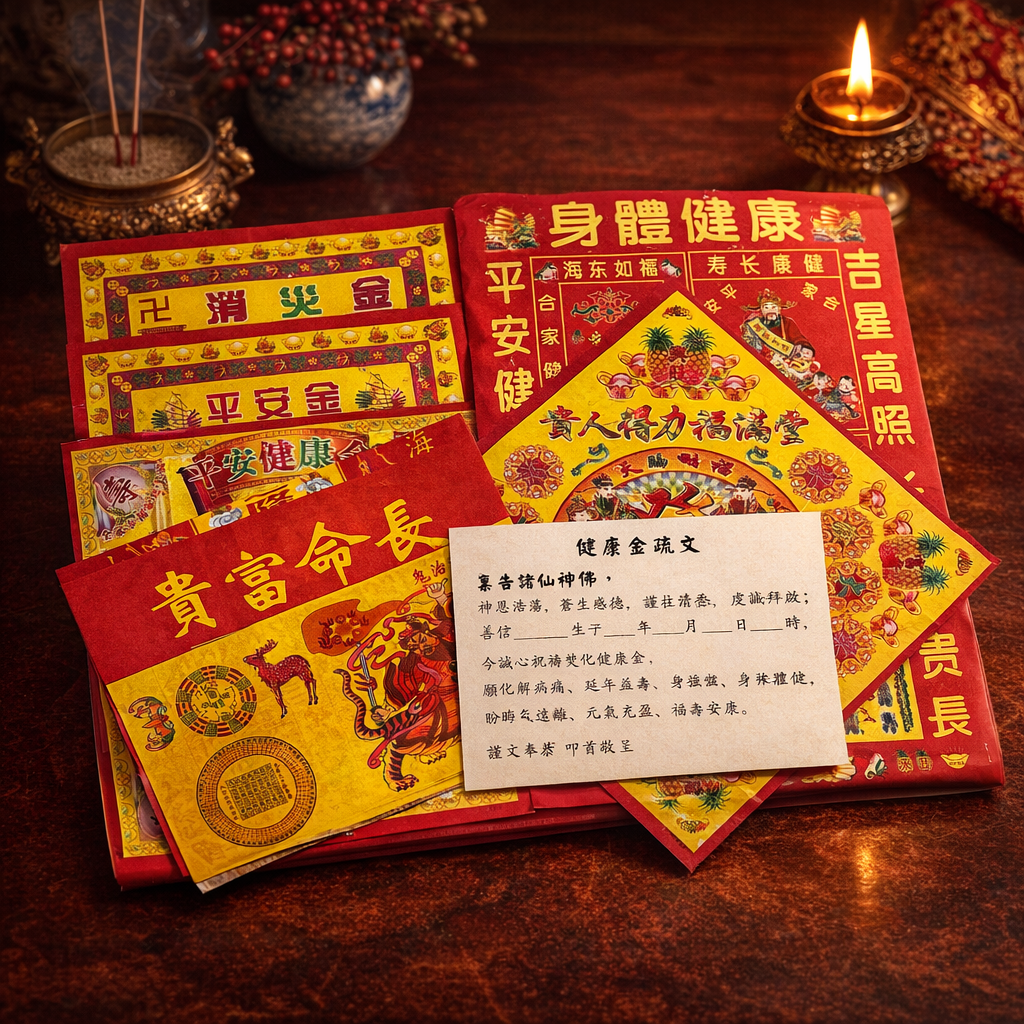 身體健康
海东如福
寿长康健
平安健
合家健
吉星高照
貴
長
卍 消災金
平安金
平安健康
壽
海
貴富命長
貴人得力福滿堂
健康金疏文
稟告諸仙神佛，
神恩浩蕩，蒼生感德，謹 清 ，虔誠拜啟；
善信______生于___年___月___日___時，
今誠心祝禱焚化健康金，
願化解病痛、延年益壽、身強 、身 體健，
遠離、元氣充盈、福壽安康。
謹文奉 叩首敬呈